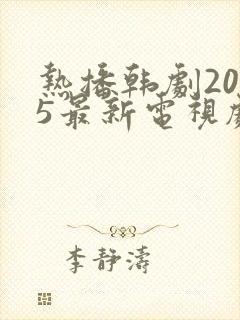 熱播韩劇20
5最新電視劇
李静濤